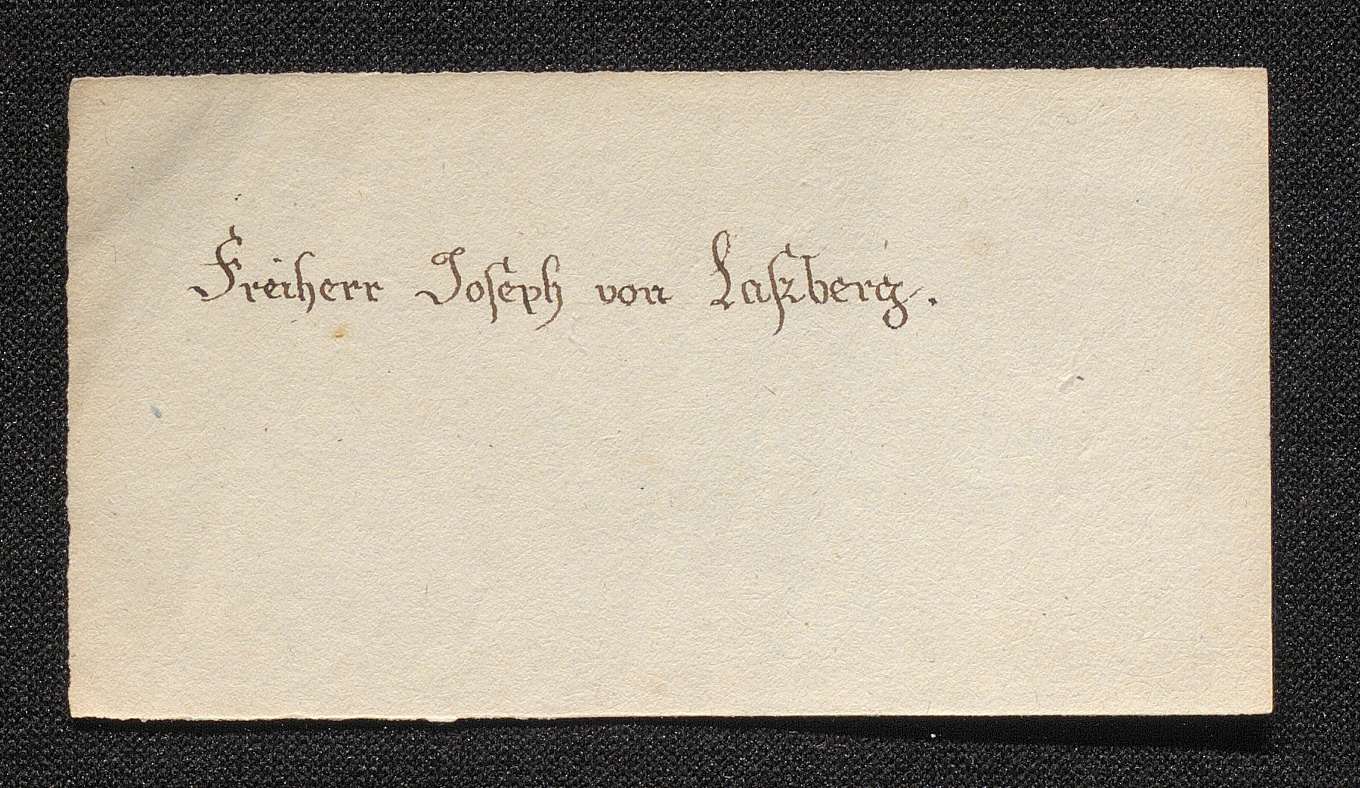 Freiherr Joseph von Laßberg.